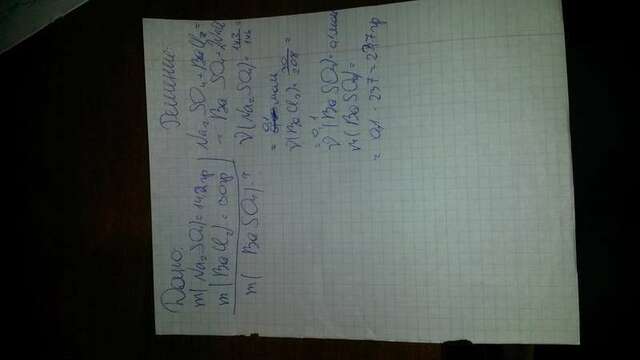 Дано:
m(Na₂SO₄)=14,2гр
m(BaCl₂)=30гр
m(BaSO₄)-?
Решение:
Na₂SO₄+BaCl₂=
=BaSO₄+2NaCl
ν(Na₂SO₄)=
= 0,1 моль
ν(BaCl₂)=30/208=
ν(BaSO₄)=0,1моль
m(BaSO₄)=
=0,1·237=23,7гр